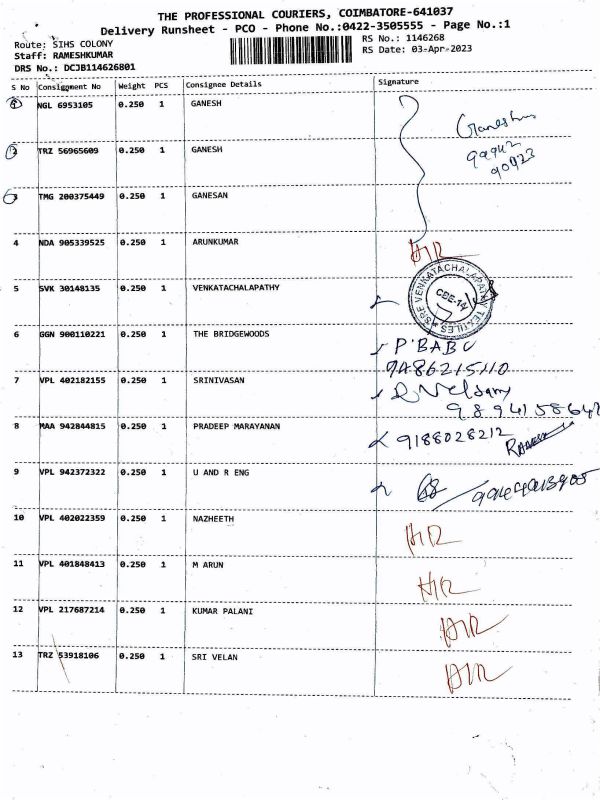 THE PROFESSIONAL COURIERS, COIMBATORE-641037
Delivery Runsheet - PCO - Phone No.:0422-3505555 - Page No.:1
Route: SIHS COLONY RS No.: 1146268
Staff: RAMESHKUMAR RS Date: 03-Apr-2023
DRS No.: DCJB114626801
S No Consignment No Weight PCS Consignee Details Signature
1 NGL 6953105 0.250 1 GANESH
2 TRZ 56965609 0.250 1 GANESH
3 TMG 200375449 0.250 1 GANESAN
4 NDA 905339525 0.250 1 ARUNKUMAR
5 SVK 30148135 0.250 1 VENKATACHALAPATHY
SRE VENKATACHALAPATHY TEXTILES
CBE-14
6 GGN 900110221 0.250 1 THE BRIDGEWOODS P.BABU
9486215110
7 VPL 402182155 0.250 1 SRINIVASAN
8 MAA 942844815 0.250 1 PRADEEP MARAYANAN 9188028212
9 VPL 942372322 0.250 1 U AND R ENG
10 VPL 402022359 0.250 1 NAZHEETH
11 VPL 401848413 0.250 1 M ARUN
12 VPL 217687214 0.250 1 KUMAR PALANI
13 TRZ 53918106 0.250 1 SRI VELAN